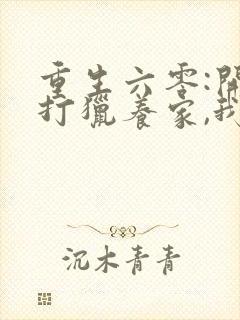 重生六零:開
打獵養家,我
沉木青青